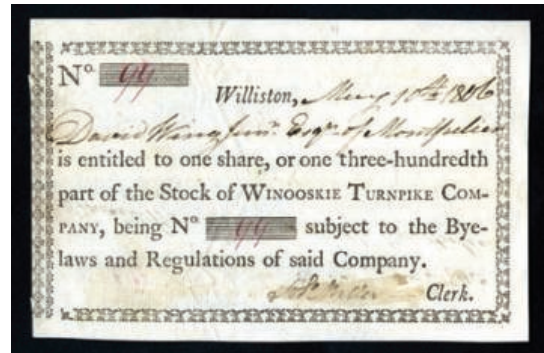 No. 99
Williston, May 10th 1806
David Wing Junr. Esqr. of Montpelier
is entitled to one share, or one three-hundredth
part of the Stock of WINOOSKIE TURNPIKE COM-
PANY, being No 99 subject to the Bye-
laws and Regulations of said Company.
Clerk.